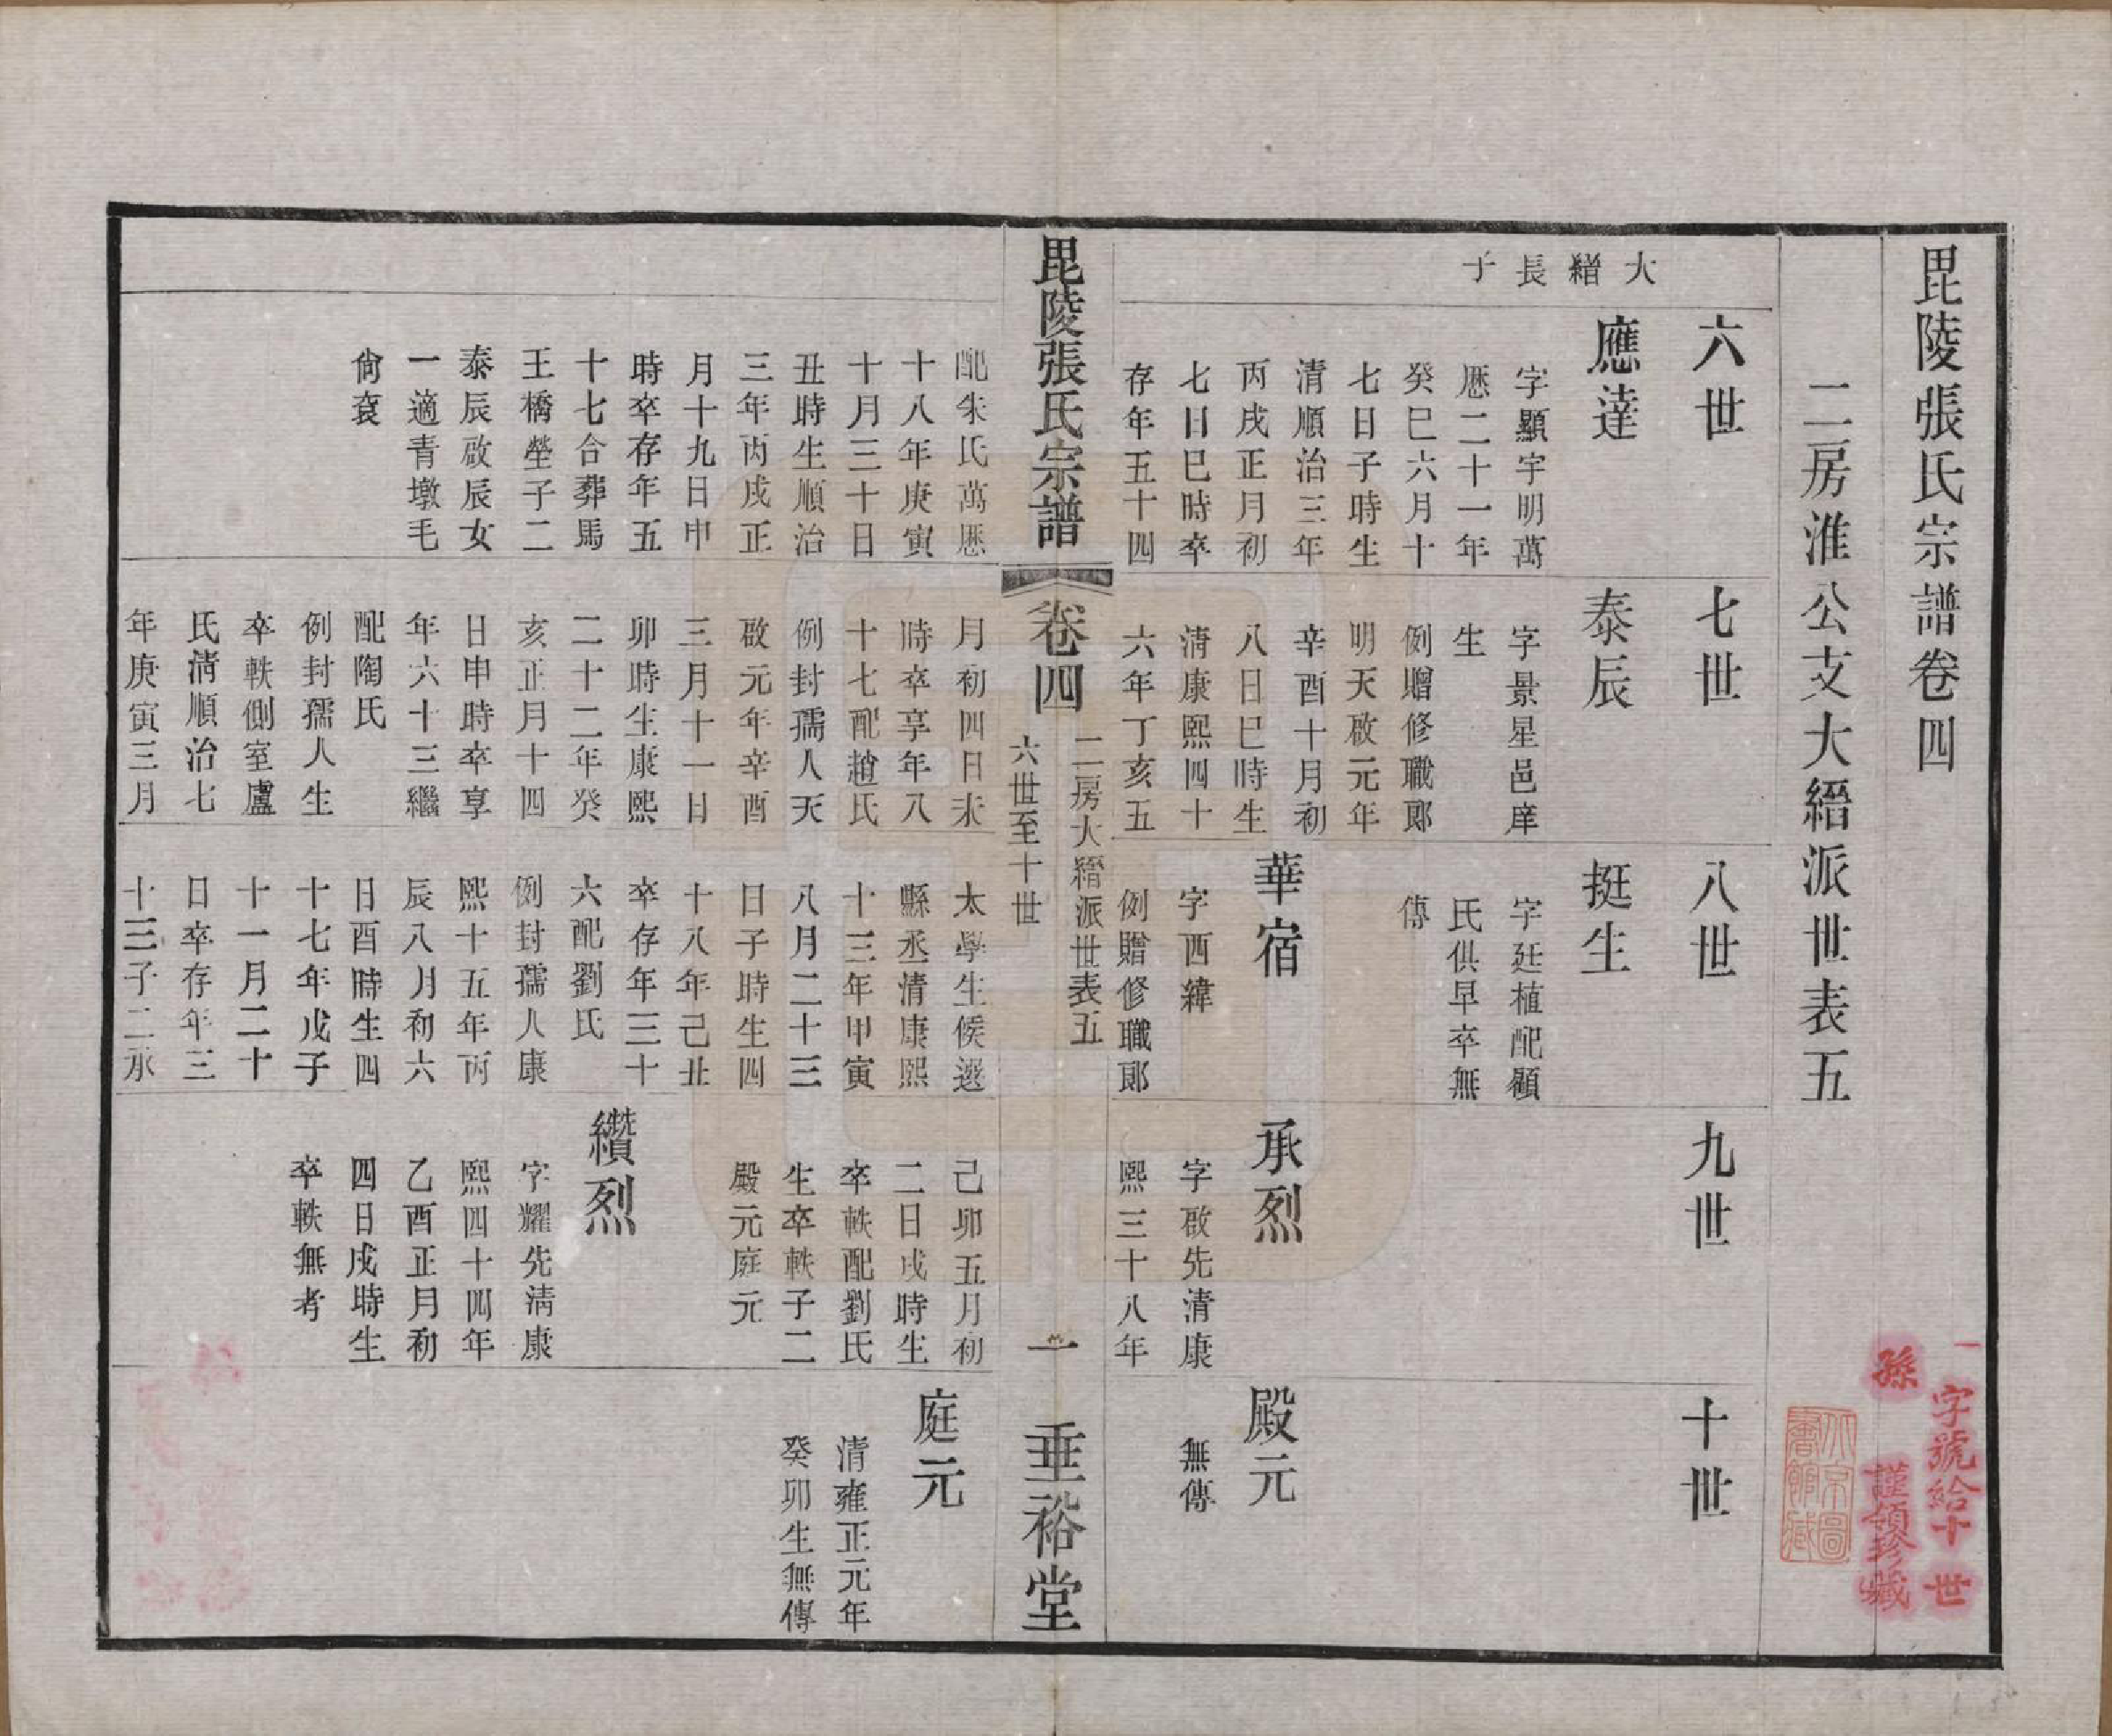 毘陵張氏宗譜卷四
二房淮公支大縉派世表五
六世
七世
八世
九世
十世
大縉長子
應達
字顯宇明萬
歷二十一年
癸巳六月十
七日子時生
清順治三年
丙戌正月初
七日巳時卒
存年五十四
配朱氏萬歷
十八年庚寅
十月三十日
丑時生順治
三年丙戌正
月十九日申
時卒存年五
十七合葬馬
王橋塋子二
泰辰啟辰女
一適青墩毛
尙袞
泰辰
字景星邑庠
生
例贈修職郞
明天啟元年
辛酉十月初
八日巳時生
清康熙四十
六年丁亥五
月初四日未
時卒享年八
十七配趙氏
例封孺人天
啟元年辛酉
三月十一日
卯時生康熙
二十二年癸
亥正月十四
日申時卒享
年六十三繼
配陶氏
例封孺人生
卒軼側室盧
氏清順治七
年庚寅三月
挺生
字廷植配顧
氏俱早卒無
傳
華宿
字西緯
例贈修職郞
太學生候選
縣丞清康熙
十三年甲寅
八月二十三
日子時生四
十八年己丑
卒存年三十
六配劉氏
例封孺人康
熙十五年丙
辰八月初六
日酉時生四
十七年戊子
十一月二十
日卒存年三
十三子二承
承烈
字啟先清康
熙三十八年
己卯五月初
二日戌時生
卒軼配劉氏
生卒軼子二
殿元庭元
纘烈
字耀先清康
熙四十四年
乙酉正月初
四日戌時生
卒軼無考
殿元
無傳
庭元
清雍正元年
癸卯生無傳
毘陵張氏宗譜
卷四
二房大縉派世表五
六世至十世
一
垂裕堂
一字號給十世
孫 謹領珍藏